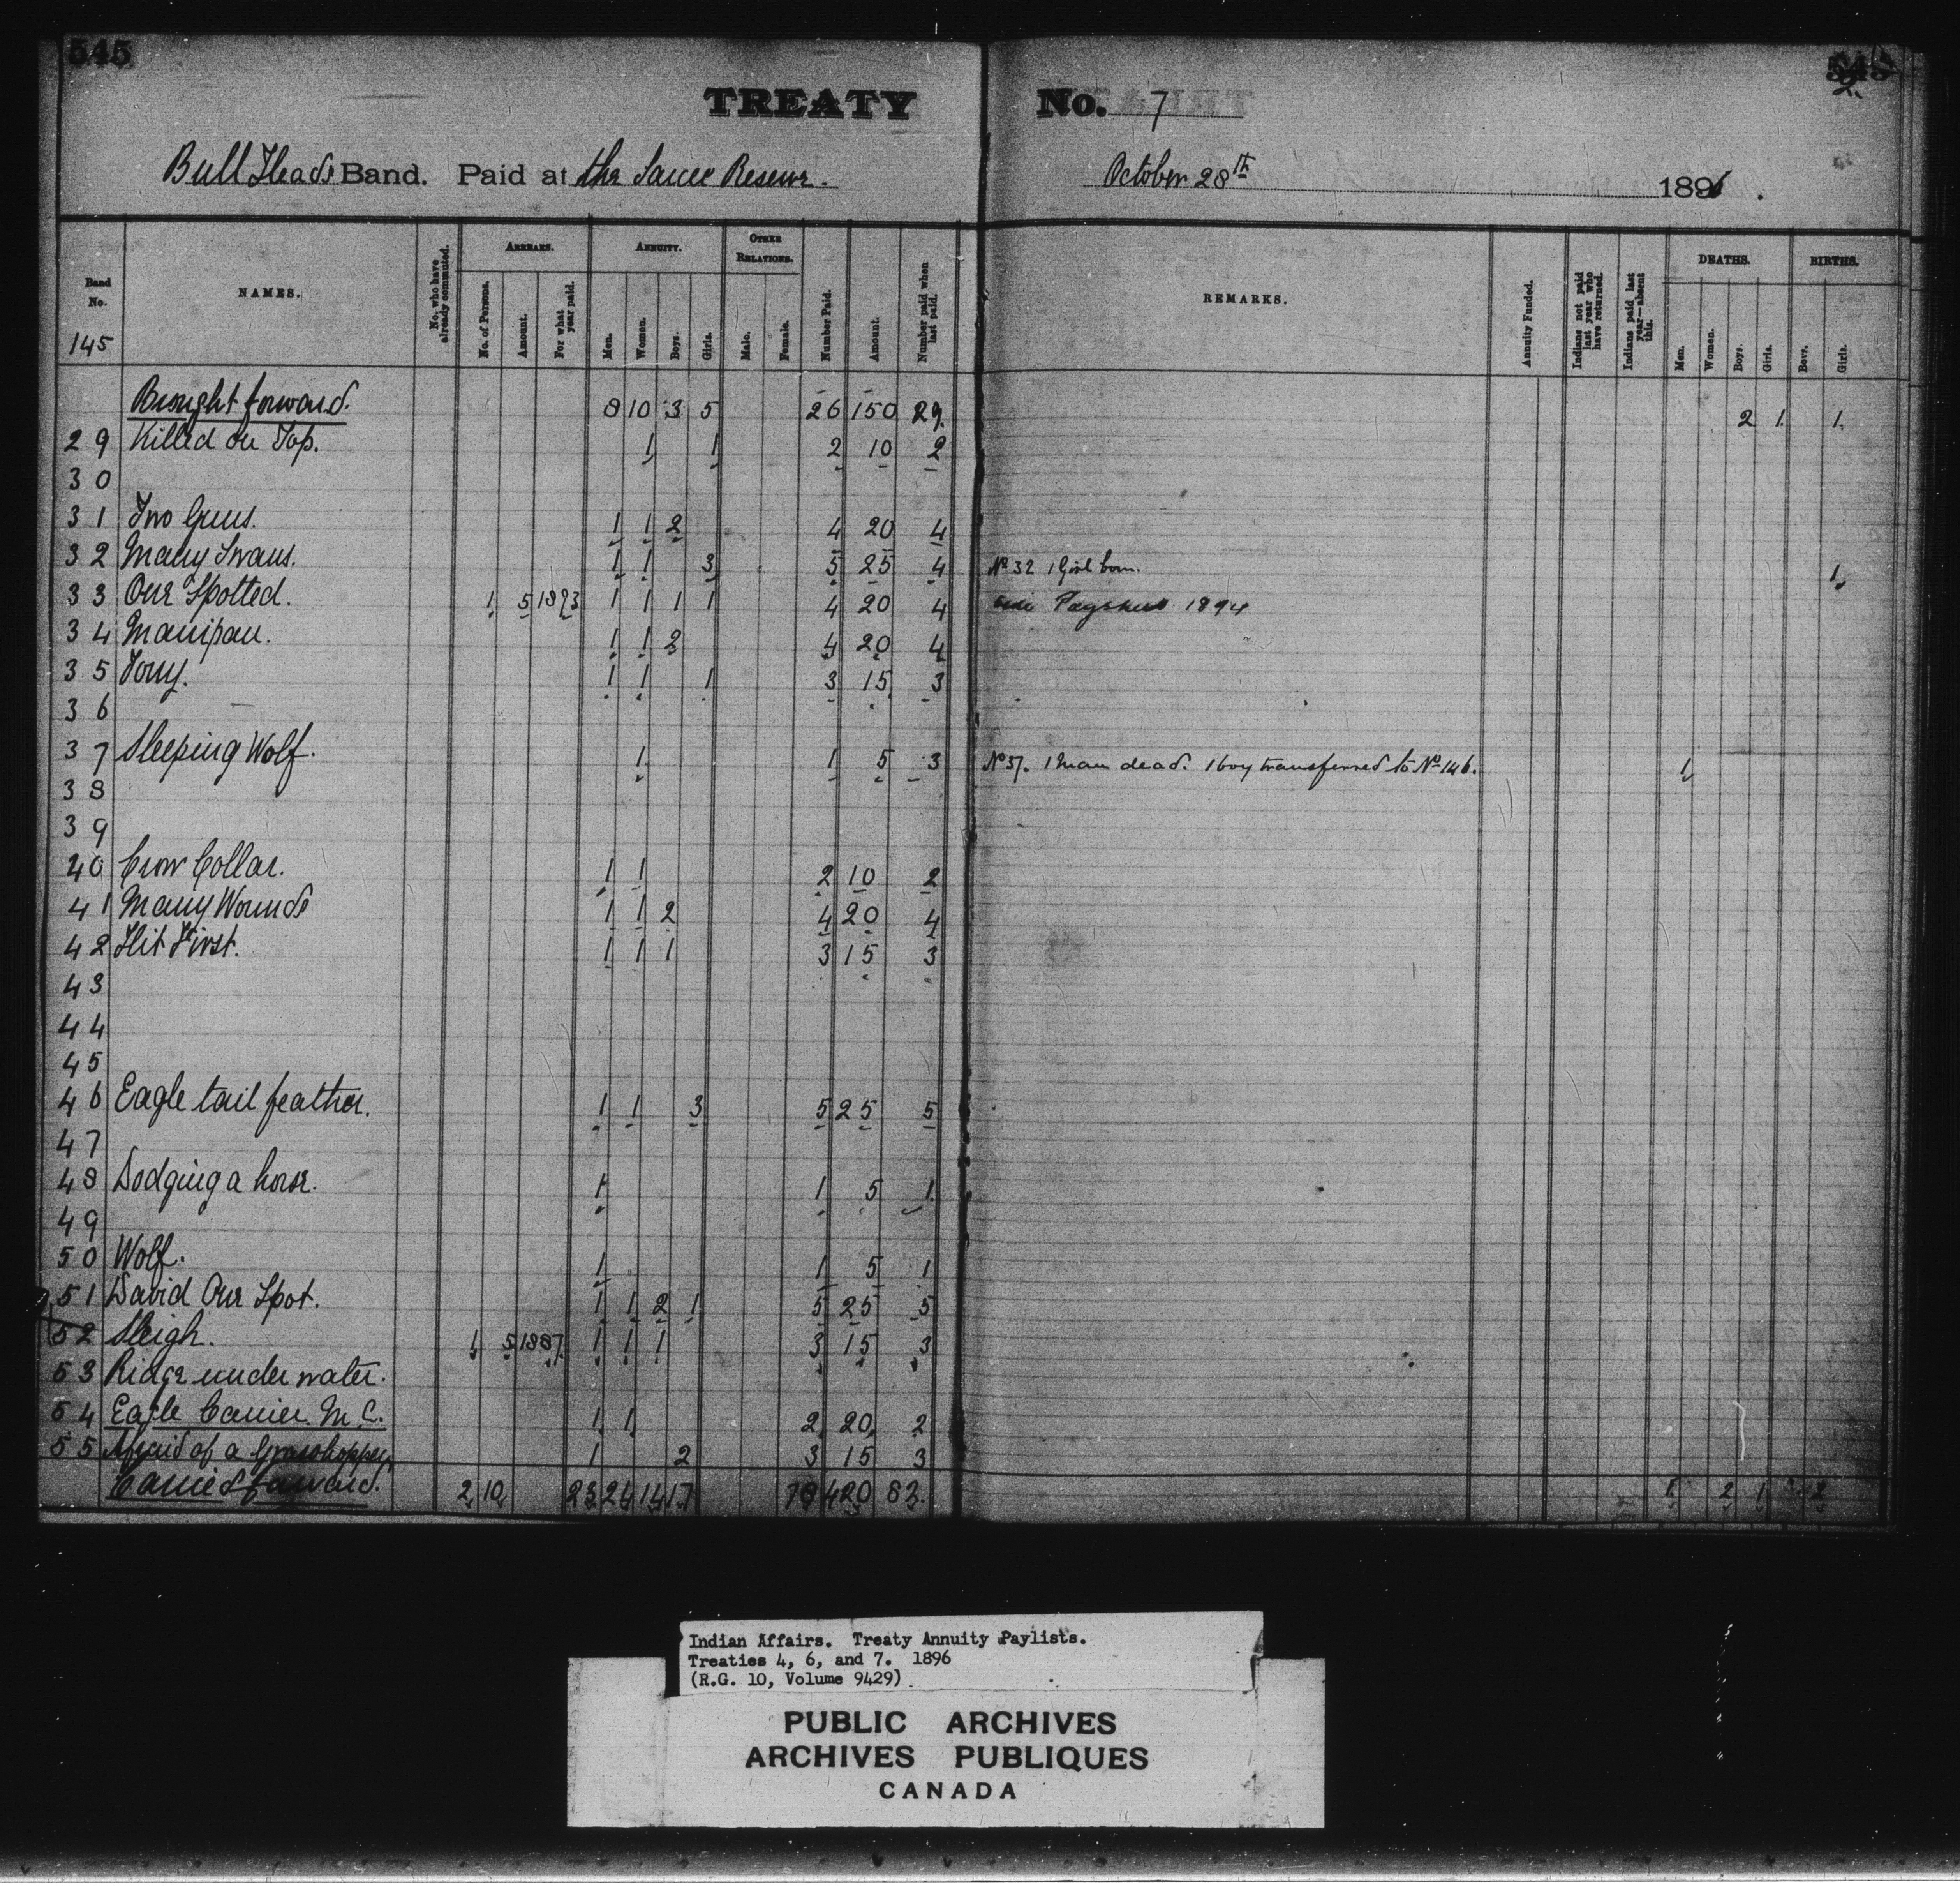 545
TREATY No. 7
2.
Bull Heads Band. Paid at the Sarcee Reserve. October 28th 1896.
Band No. NAMES. No. who have already commuted. ARREARS. No. of Persons. Amount. For what year paid. ANNUITY. Men. Women. Boys. Girls. OTHER RELATIONS. Male. Female. Number Paid. Amount. Number paid when last paid. REMARKS. Annuity Funded. Indians not paid last year who have returned. Indians paid last year—absent this. DEATHS. Men. Women. Boys. Girls. BIRTHS. Boys. Girls.
145
Brought forward. 8 10 3 5 26 150 29. 2 1. 1.
29 Killed on Top. 1 1 2 10 2
30
31 Two Guns. 1 1 2 4 20 4
32 Many Swans. 1 1 3 5 25 4 No 32 1 Girl born. 1
33 One Spotted. 1 5 1893 1 1 1 1 4 20 4 1894
34 Manipau. 1 1 2 4 20 4
35 Tony. 1 1 1 3 15 3
36
37 Sleeping Wolf. 1 1 5 3 No 37. 1 Man dead. 1 boy transferred to No 146. 1
38
39
40 Crow Collar. 1 1 2 10 2
41 Many Wounds 1 1 2 4 20 4
42 Hit First. 1 1 1 3 15 3
43
44
45
46 Eagle tail feather. 1 1 3 5 25 5
47
48 Dodging a horse. 1 1 5 1
49
50 Wolf. 1 1 5 1
51 David One Spot. 1 1 2 1 5 25 5
52 Sleigh. 1 5 1887 1 1 1 3 15 3
53 Ridge under water.
54 Eagle Carrier M.C. 1 1 2 20 2
55 Afraid of a Grasshopper. 1 2 3 15 3
Carried forward. 2 10 23 24 14 17 78 420 83. 1 2 1 2
Indian Affairs. Treaty Annuity Paylists.
Treaties 4, 6, and 7. 1896
(R.G. 10, Volume 9429)
PUBLIC ARCHIVES
ARCHIVES PUBLIQUES
CANADA